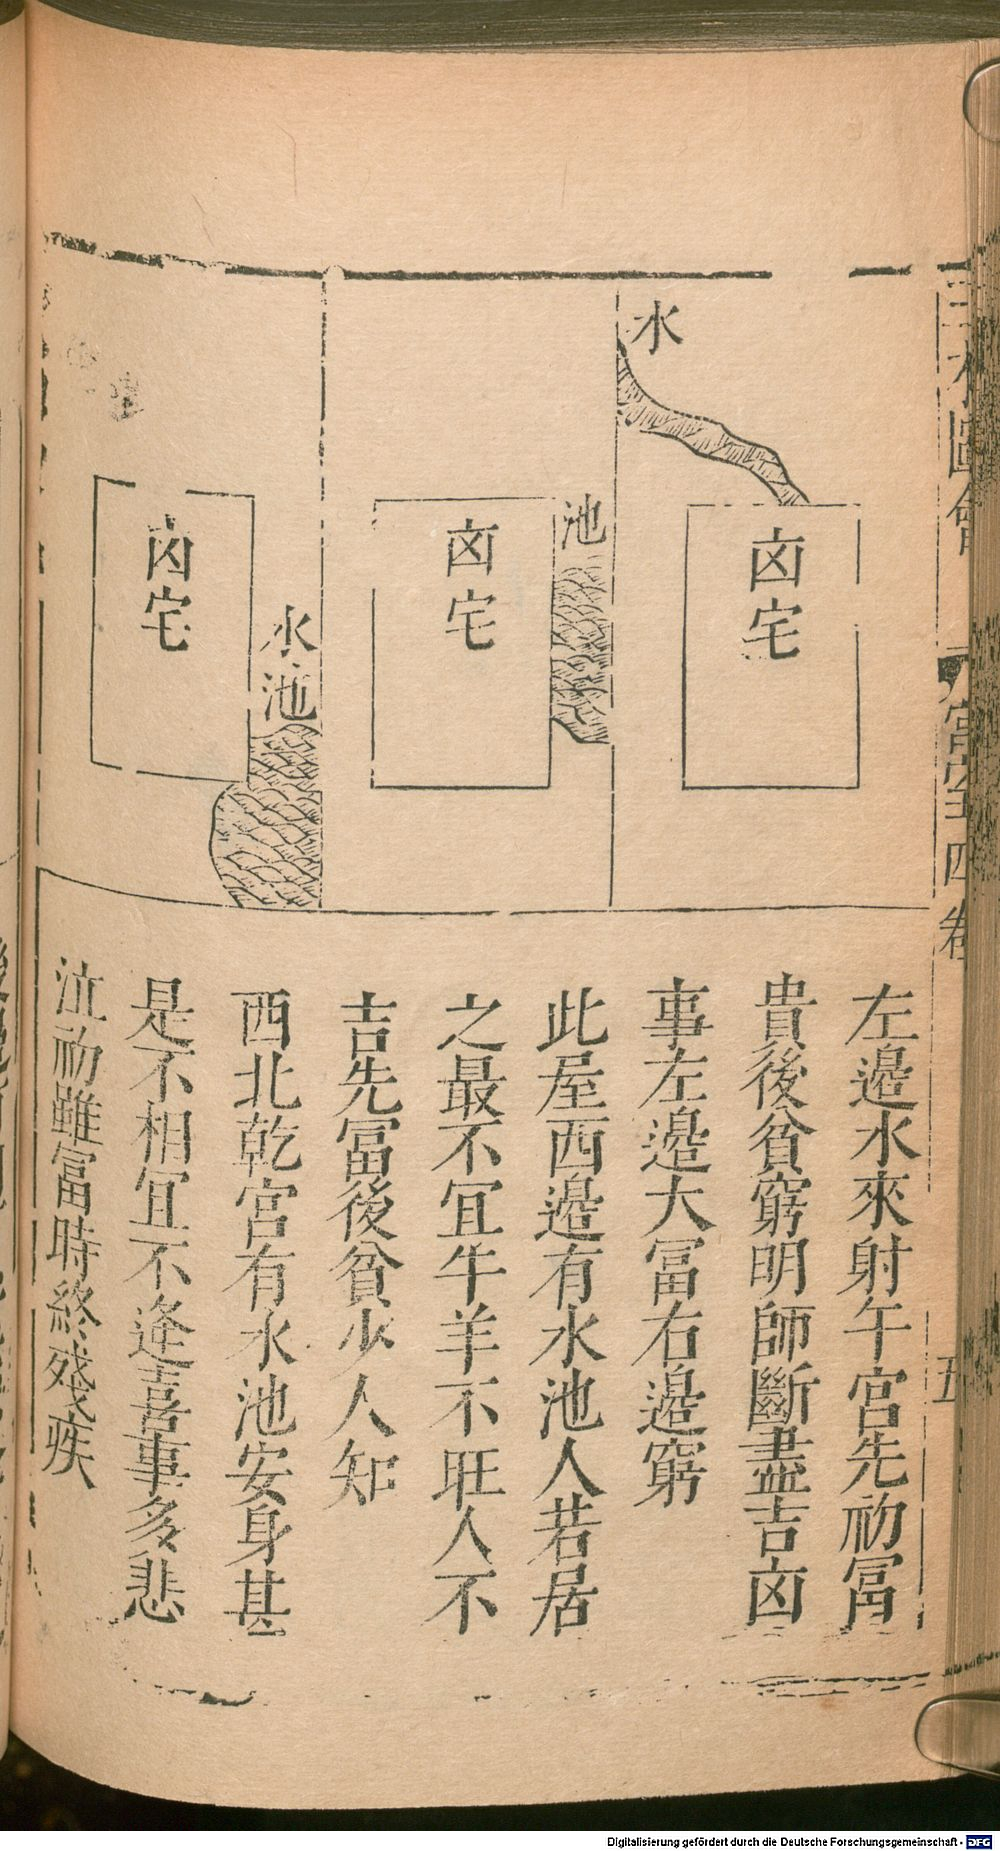 三才圖會
宮室四卷
五
水
凶宅
池
凶宅
水池
凶宅
左邉水來射午宮先初冨
貴後貧窮明師斷盡吉凶
事左邉大冨右邉窮
此屋西邉有水池人若居
之最不冝牛羊不旺人不
吉先冨後貧少人知
西北乾宮有水池安身甚
是不相冝不逢喜事多悲
泣初雖富時終殘疾
Digitalisierung gefördert durch die Deutsche Forschungsgemeinschaft - DFG